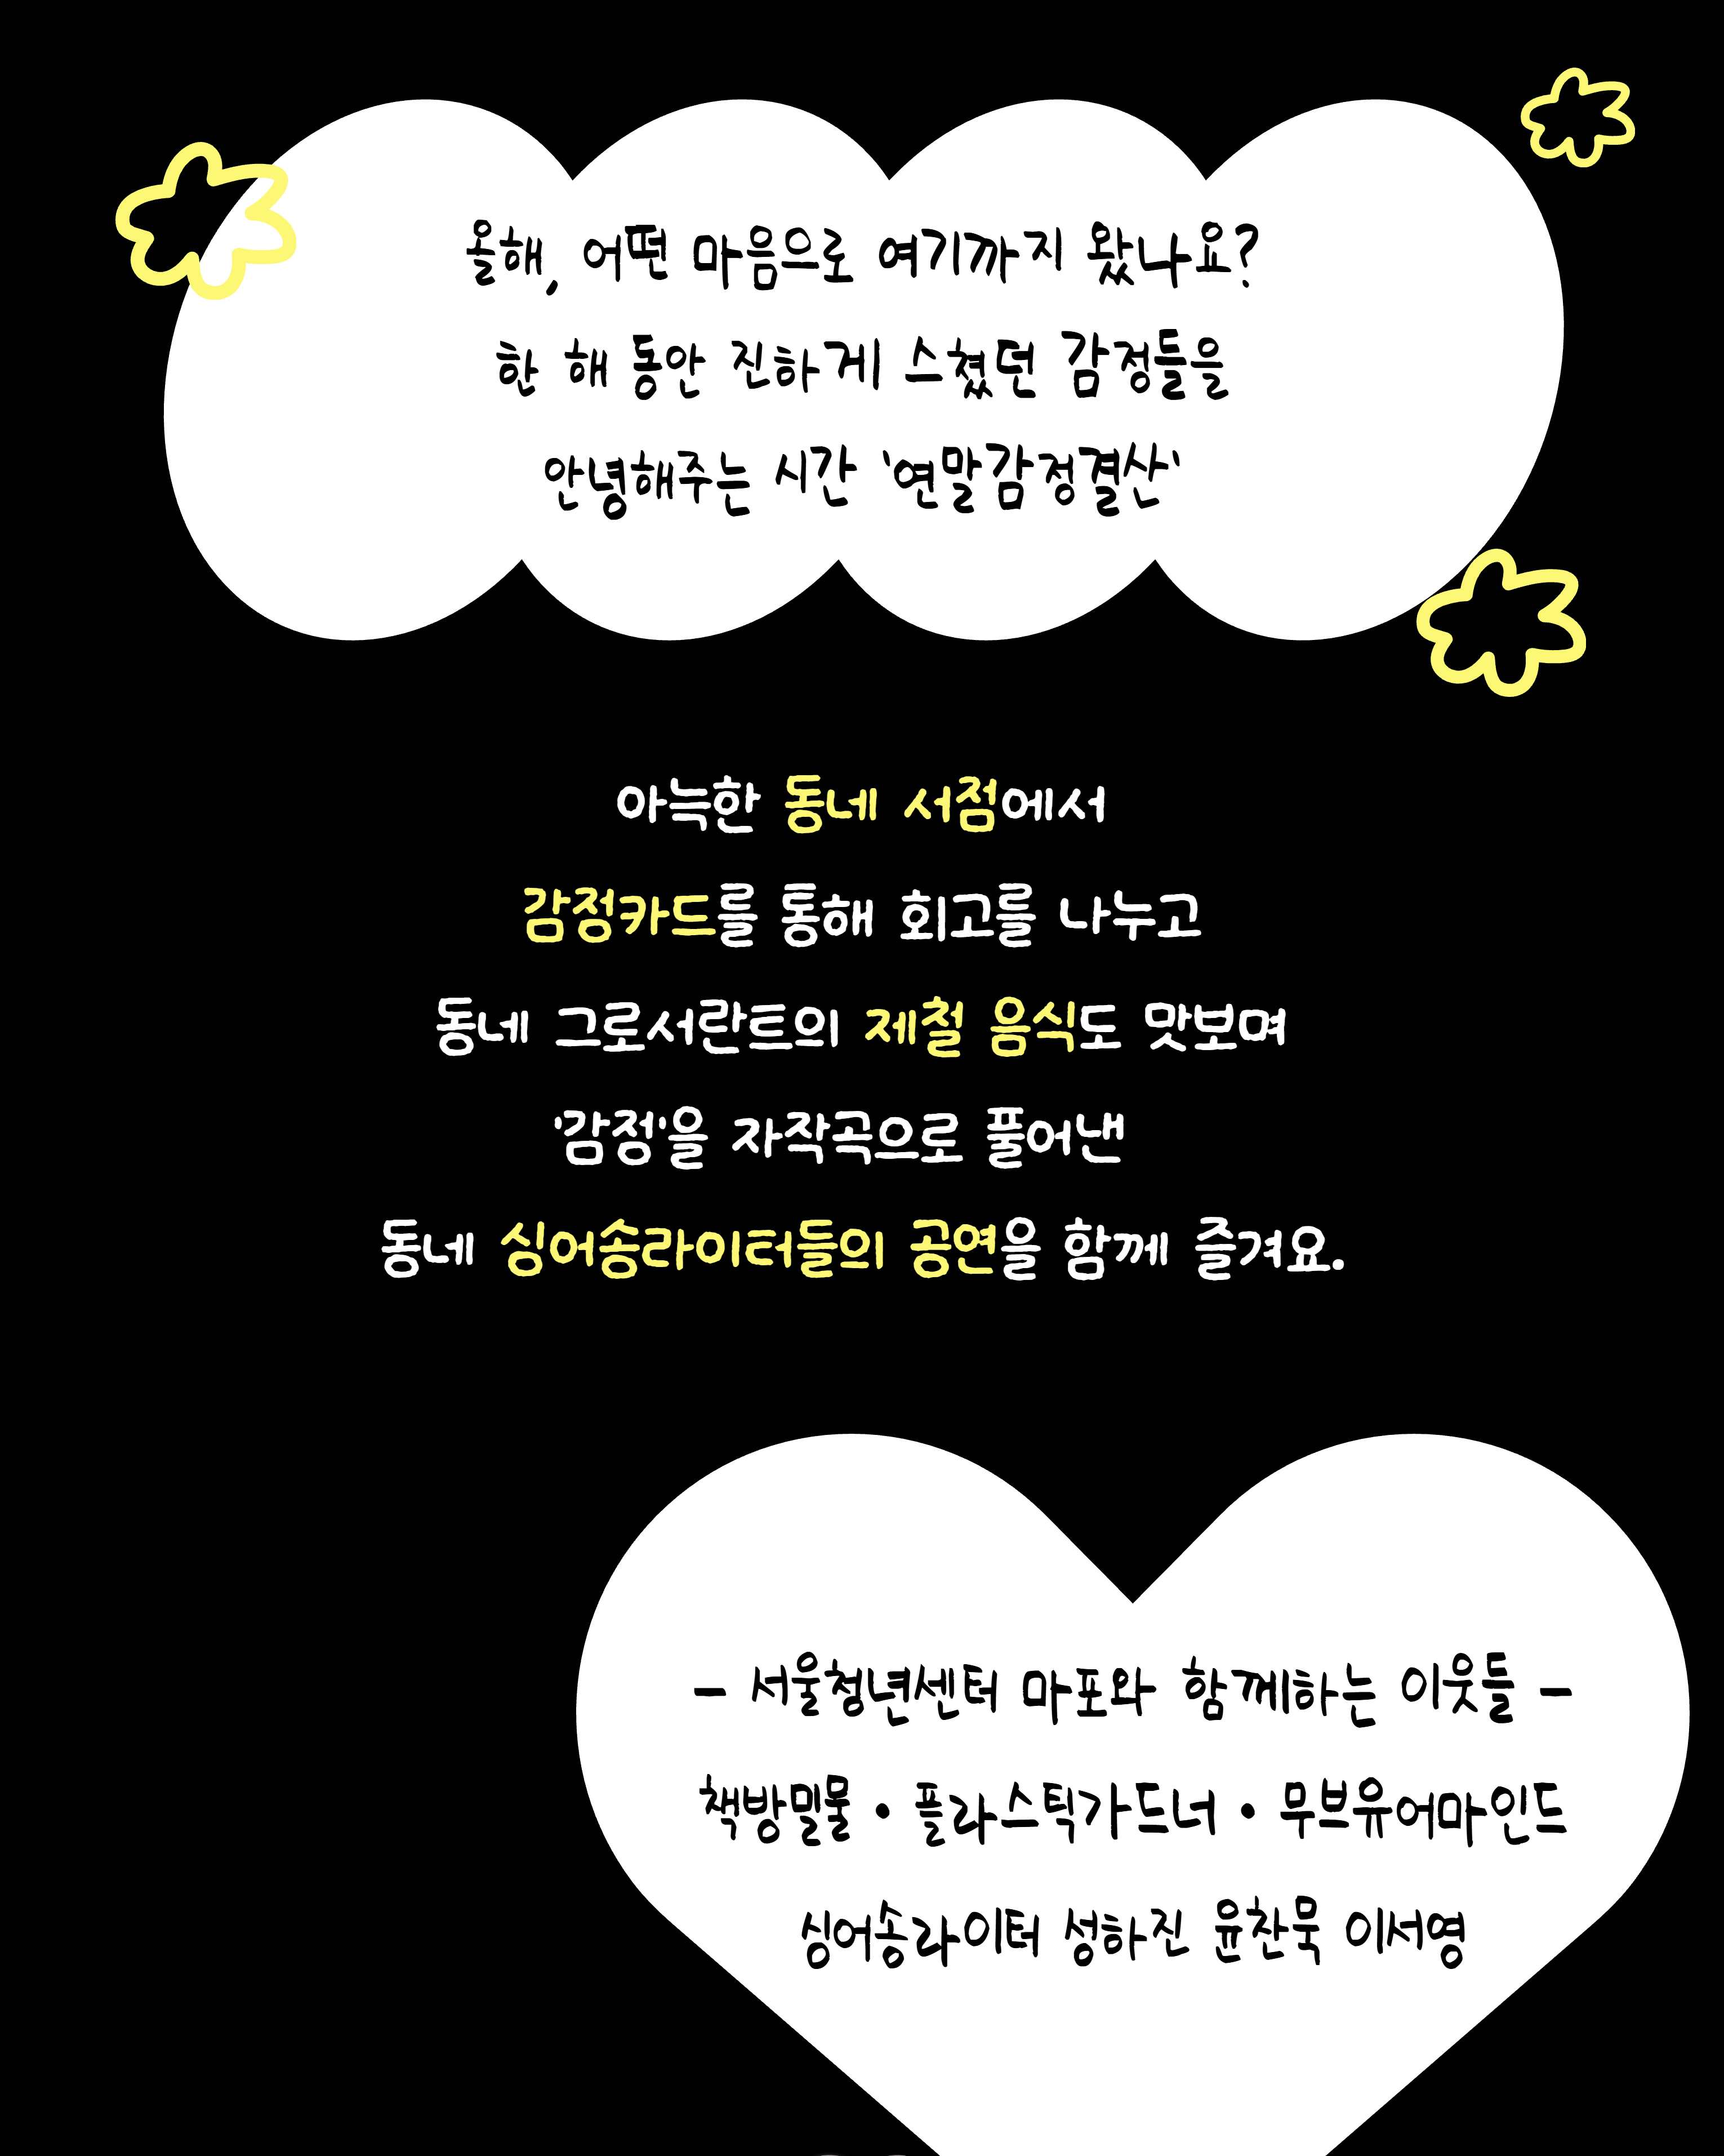 올해, 어떤 마음으로 여기까지 왔나요?
한 해 동안 진하게 스쳤던 감정들을
안녕해주는 시간 '연말감정결산'
아늑한 동네 서점에서
감정카드를 통해 회고를 나누고
동네 그로서란트의 제철 음식도 맛보며
'감정'을 자작곡으로 풀어낸
동네 싱어송라이터들의 공연을 함께 즐겨요.
- 서울청년센터 마포와 함께하는 이웃들 -
책방밀물 • 플라스틱가드너 • 무브유어마인드
싱어송라이터 성하진 윤찬묵 이서영